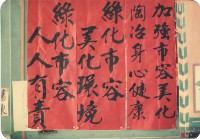 加強市容美化
陶冶身心健康
綠化市容
美化環境
綠化市容
人人有責